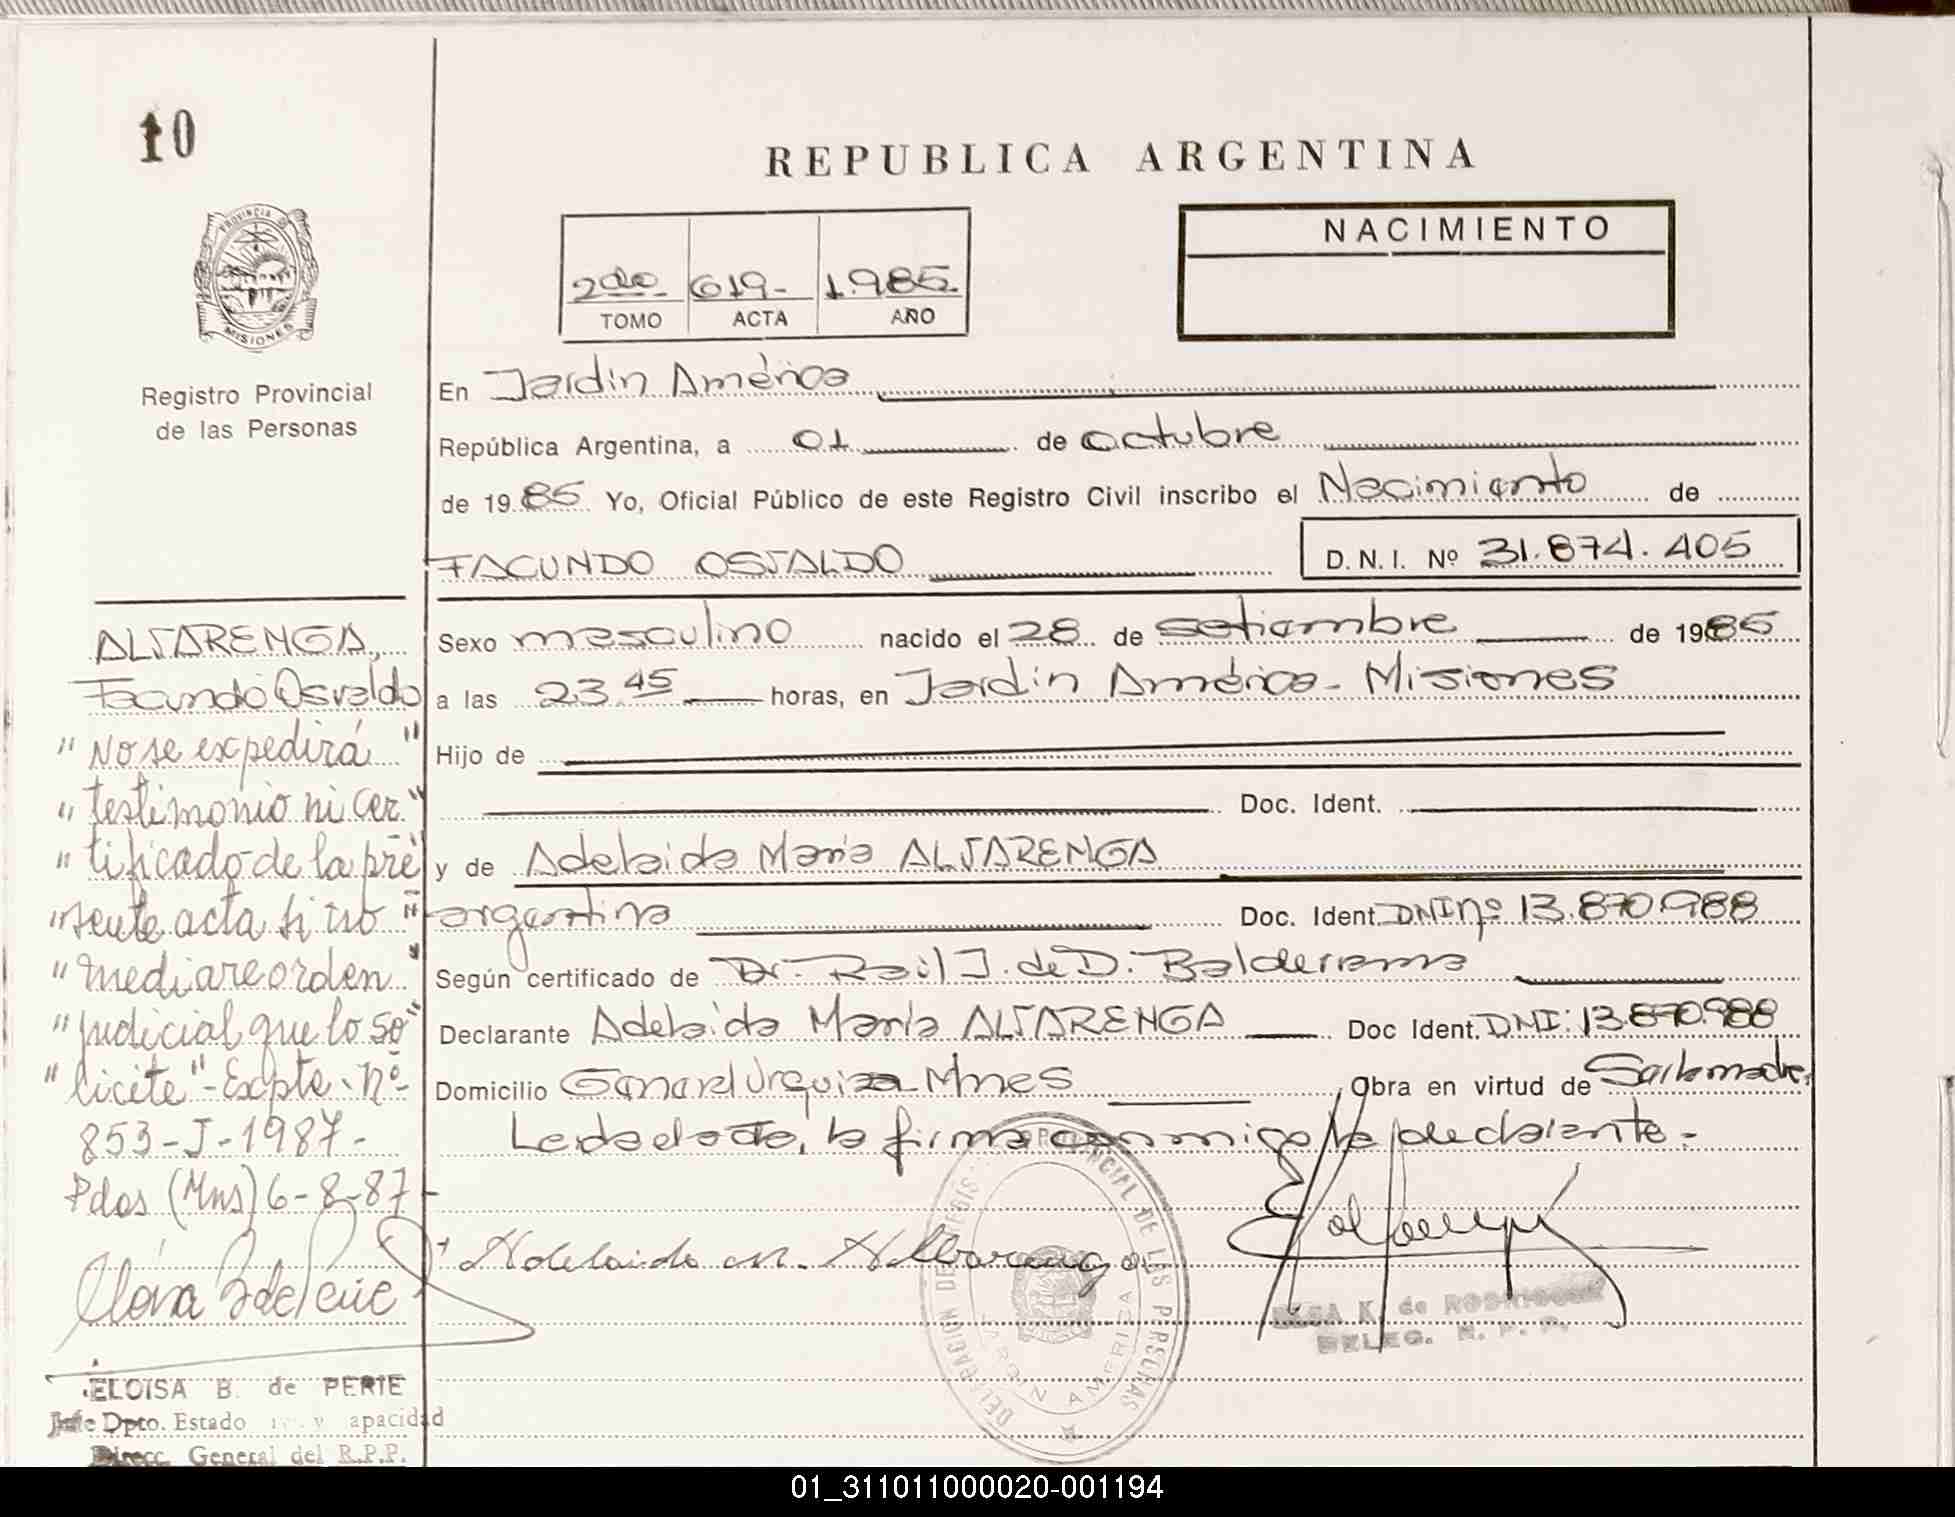 10
REPUBLICA ARGENTINA
PROVINCIA DE
MISIONES
Registro Provincial
de las Personas
2do 619- 1.985.
TOMO ACTA AÑO
NACIMIENTO
En Jardin América
República Argentina, a 01 de octubre
de 1985 Yo, Oficial Público de este Registro Civil inscribo el Nacimiento de
FACUNDO OSVALDO D.N.I. Nº 31.874.405
Sexo masculino nacido el 28 de setiembre de 1985
a las 23.45 horas, en Jardin América- Misiones
Hijo de
Doc. Ident.
y de Adelaida María ALVARENGA
argentina Doc. Ident. DNI nº 13.870.988
Según certificado de Dr. Raúl J. de D. Balderrama
Declarante Adelaida María ALVARENGA Doc Ident. DNI: 13.870.988
Domicilio General Urquiza- Mnes Obra en virtud de Ser la madre.
Leida el acta, la firma conmigo la declarante.-
Adelaida M. Albarenga
DELEGACION DE REGIS. PROVINCIAL DE LAS PERSONAS
JARDIN AMERICA
ELSA K. de RODRIGUEZ
DELEG. R. P. P.
ALVARENGA,
Facundo Osvaldo
"No se expedirá"
"testimonio ni cer-"
"tificado de la pre"
"sente acta si no"
"mediare orden"
"judicial que lo so"
"licite"- Expte. Nº
853-J-1987-
Pdas (Mns) 6-8-87-
ELOISA B. de PERIE
Jefe Dpto. Estado y apacidad
Direcc. General del R.P.P.
01_311011000020-001194